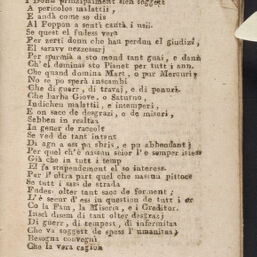 A pericolo malattii,
E andà come so dis
Al Foppon a senti cantà i usii.
Se quest el fudess vera
Per zerti donn che han perdun el giudizi,
El saravv nezzessari
Per sparmià a sto mond tant guai, e dann
Ch'el dominas sto Pianet per tutt i ann.
Che quand domina Mart, o pur Mercuri,
No se po sperà inscambi
Che di guerr, di travaj, e di penuri.
Che Giove, o Saturno,
Indichen malattii, e intemperi,
E on sacc de desgrazi, o de miseri,
Sebben in realtaa
In gener de raccolt
Se ved de tant intant
Di agn a ass pu sbris, e pu abbondant;
Per quel ch'è nassun scior l'è semper istess
Già che in tutt i temp
El fa stupendement el so interess.
Per l'oltra part quel che nassun pittocc
Se tutt i sass de strada
Fudess olter tant sacc de forment;
L'è secur d'ess in question de tutt i
Co la Fam, la Miseria, e i Creditor.
Insci disem di tant olter desgrazi
Di guerr, di tempest, di infermitaa
Che va soggett de spess l'umanitaa;
Besogna convegnì
Che la vera cagion